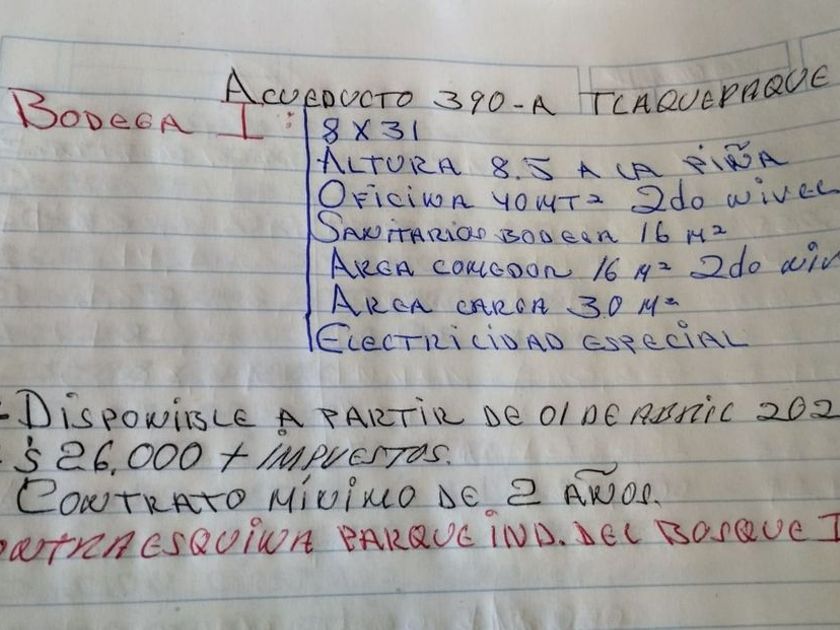 ACUEDUCTO 390-A TLAQUEPAQUE
BODEGA I:
8 X 31
ALTURA 8.5 A LA PIÑA
OFICINA 40 MT2 2do NIVEL
SANITARIOS BODEGA 16 M²
AREA COMEDOR 16 M² 2do NIV
AREA CARGA 30 M²
ELECTRICIDAD ESPECIAL
- DISPONIBLE A PARTIR DE 01 DE ABRIL 202
- $ 26,000 + IMPUESTOS.
CONTRATO MÍNIMO DE 2 AÑOS.
ONTRAESQUINA PARQUE IND. DEL BOSQUE I